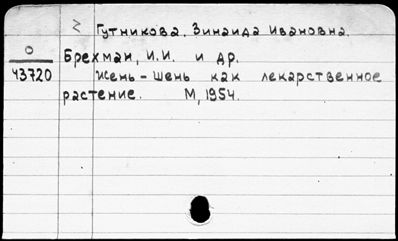 Гутникова, Зинаида Ивановна.
О
43720
Брехман, И.И. и др.
Жень-шень как лекарственное
растение. М, 1954.